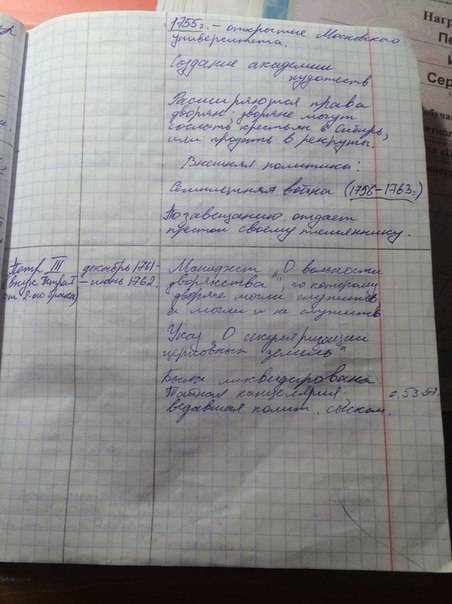 1755г. – открытие Московского
университета.
Создание академии
художеств
Расширяются права
дворян: дворяне могут
сослать крестьян в Сибирь,
или продать в рекруты.
Внешняя политика:
Семилетняя война (1756–1763г.)
По завещанию отдает
престол своему племяннику.
Петр III
внук Петра I
от 2-ого брака)
декабрь 1761
– июнь 1762.
Манифест „О вольности
дворянства", по которому
дворяне могли служить
и могли и не служить
Указ „О секуляризации
церковных земель"
Была ликвидирована
Тайная канцелярия,
ведавшая полит. сыском.
Нагр
Пе
И
Сер